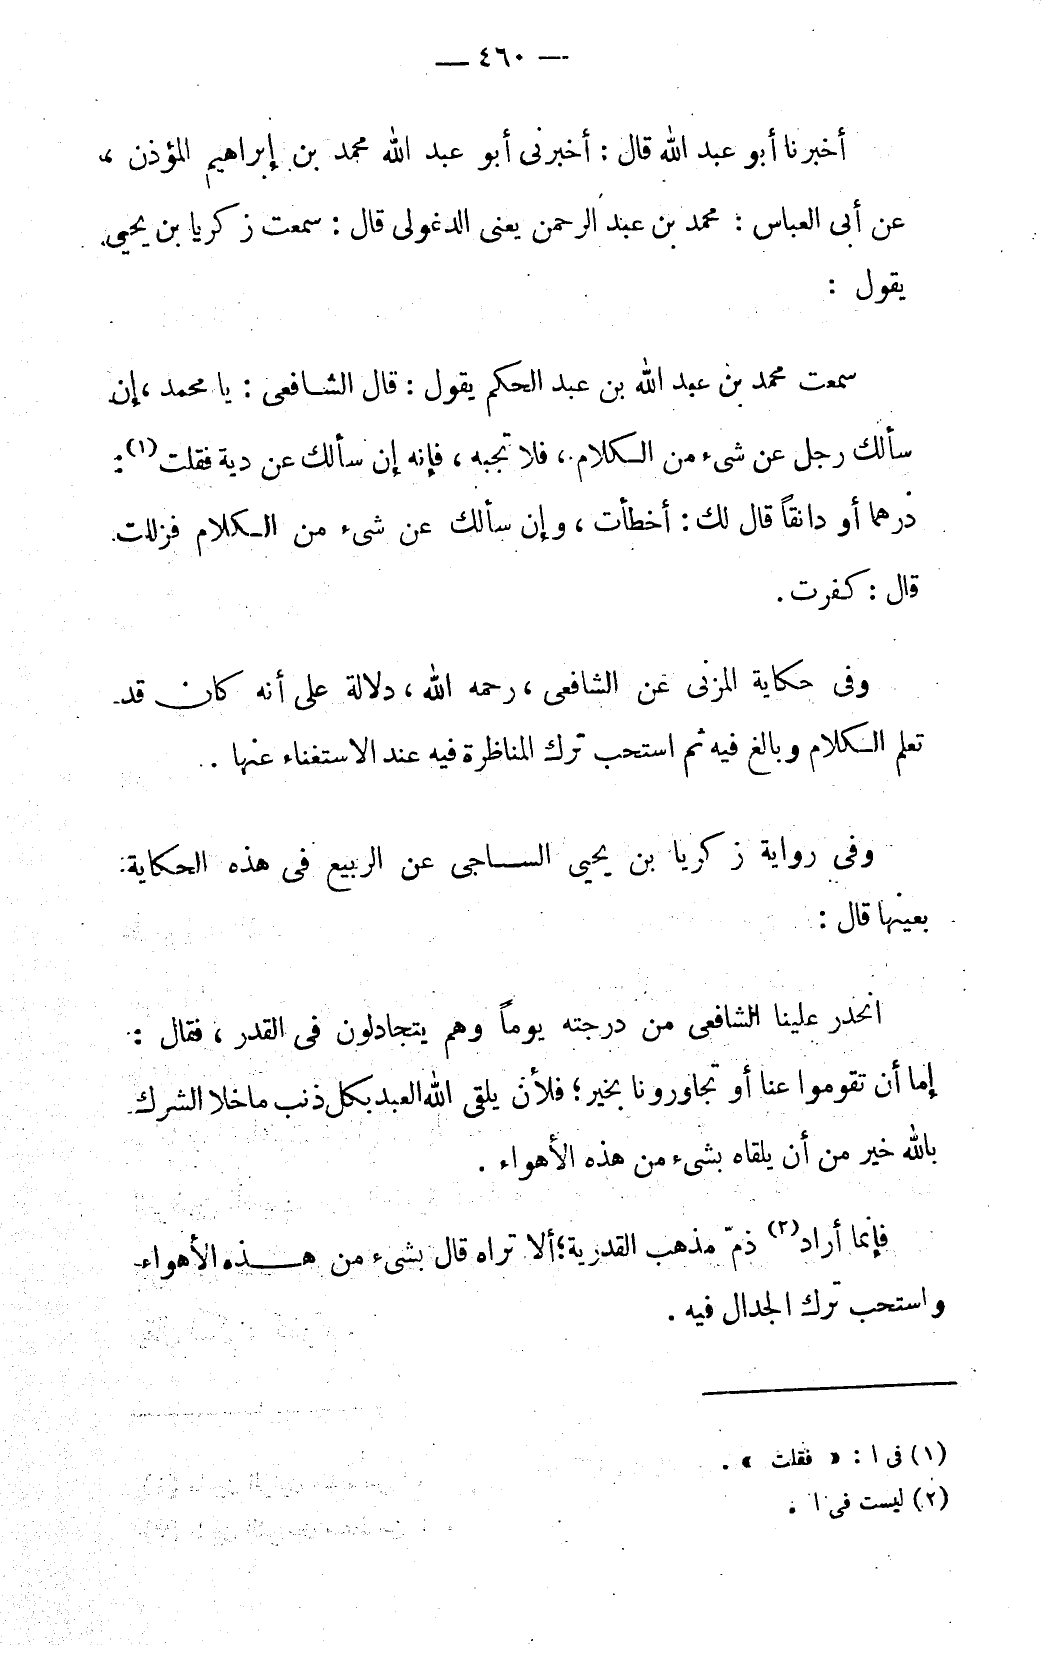 — ٤٦٠ —
أخبرنا أبو عبد الله قال : أخبرنى أبو عبد الله محمد بن إبراهيم المؤذن ،
عن أبى العباس : محمد بن عبد الرحمن يعنى الدغولى قال : سمعت زكريا بن يحيى
يقول :
سمعت محمد بن عبد الله بن عبد الحكم يقول : قال الشافعى : يا محمد ، إن
سألك رجل عن شىء من الكلام ، فلا تجبه ، فإنه إن سألك عن دية فقلت(١) :
درهما أو دانقاً قال لك : أخطأت ، وإن سألك عن شىء من الكلام فزللت
قال : كفرت .
وفى حكاية المزنى عن الشافعى ، رحمه الله ، دلالة على أنه كان قد
تعلم الكلام وبالغ فيه ثم استحب ترك المناظرة فيه عند الاستغناء عنها .
وفى رواية زكريا بن يحيى الساجى عن الربيع فى هذه الحكاية
بعينها قال :
انحدر علينا الشافعى من درجته يوماً وهم يتجادلون فى القدر ، فقال :
إما أن تقوموا عنا أو تجاورونا بخير ؛ فلأن يلقى الله العبد بكل ذنب ما خلا الشرك
بالله خير من أن يلقاه بشىء من هذه الأهواء .
فإنما أراد(٢) ذمّ مذهب القدرية ؛ ألا تراه قال بشىء من هذه الأهواء
واستحب ترك الجدال فيه .
(١) فى ا : « فقلت » .
(٢) ليست فى ا .